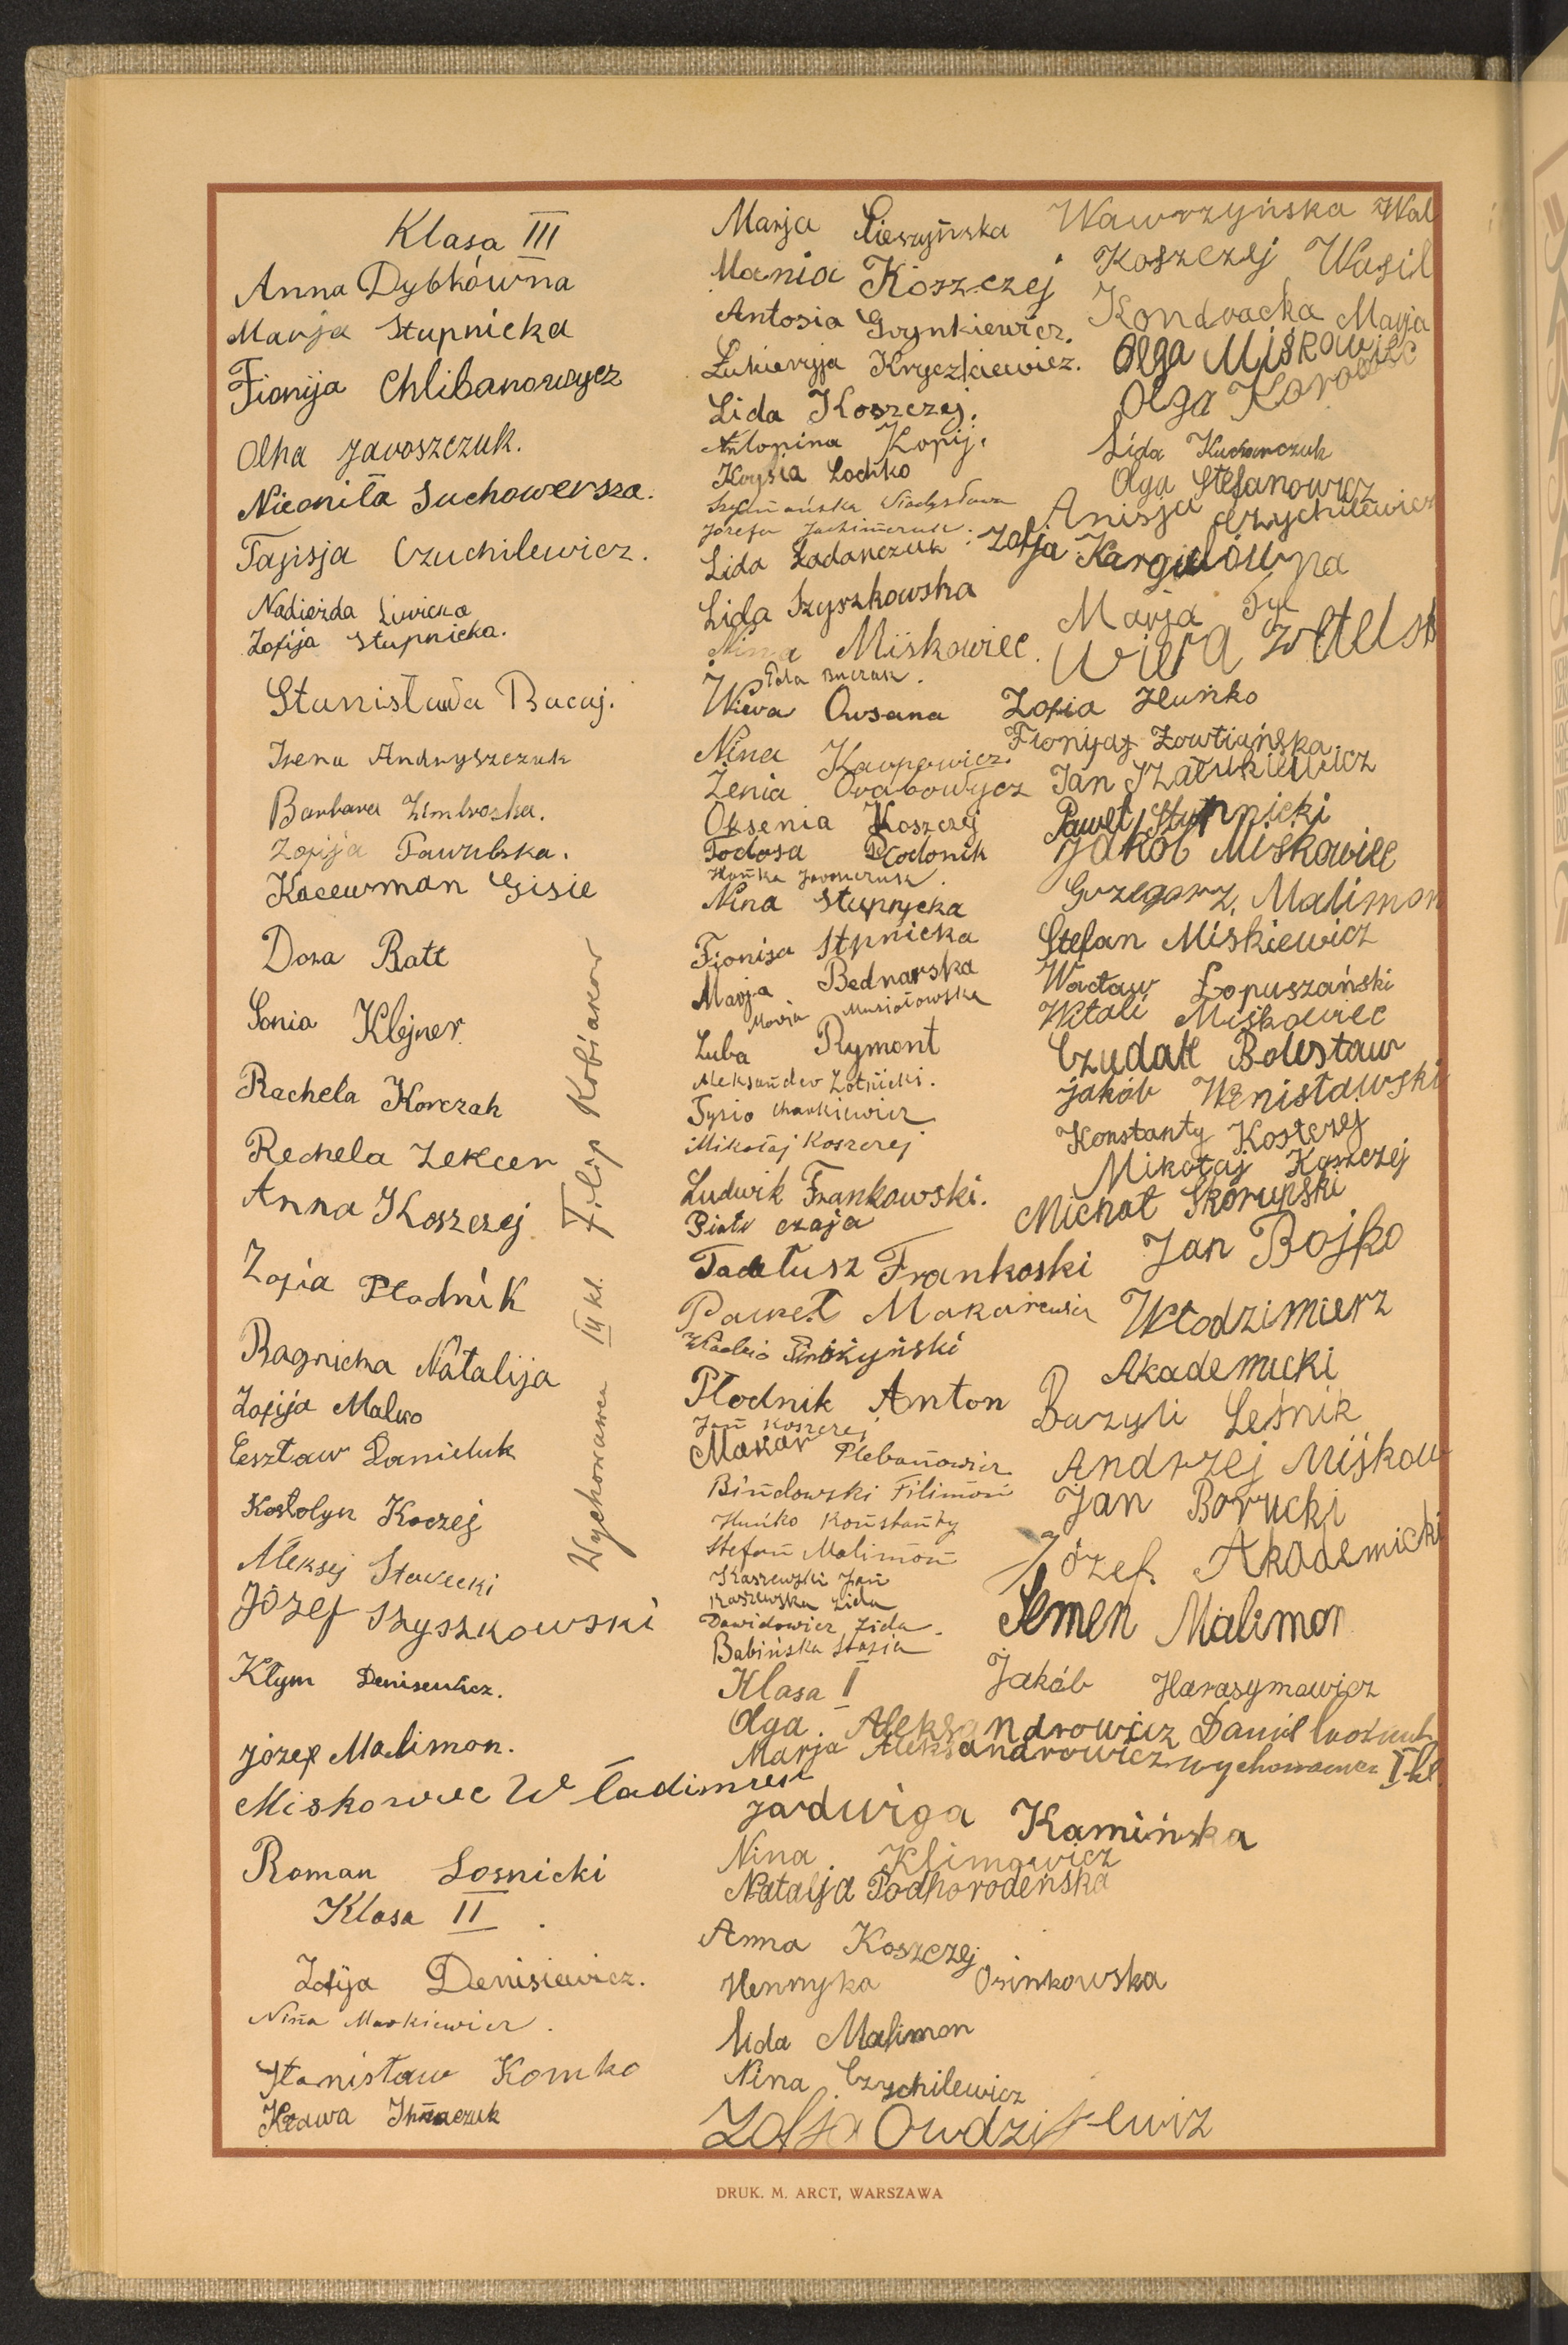 Klasa III
Anna Dybkówna
Marja Stupnicka
Fionija Chlibanowycz
Olha Jaroszczuk.
Nieonila Suchowersza.
Tajisja Czuchilewicz.
Nadieżda Liwicka
Zofija Stupnicka.
Stanisława Bacaj.
Irena Andryszczuk
Barbara
Zofija
Kacewman Gisie
Dora Ratt
Sonia Klejner
Rachela Korczak
Rechela Zekcer
Anna Koszczej
Zofia Płodnik
Ragnicka Natalija
Zofija Malko
Czesław Daniluk
Koczej
Aleksej Stawecki
Józef Szyszkowski
Kłym Denisewicz.
Józef Malimon.
Miskowec Władimier
Roman Losnicki
Klasa II
Zofija Denisiewicz.
Nina Markiewicz.
Stanisław Komko
Kława Ihnaczuk
Wychowawca III kl. Filip Kobiakow
Marja Lieszyńska
Mania Koszczej
Antosia Grynkiewicz.
Łukieryja Kryczkiewicz.
Lida Koszczej.
Antonina Kopij.
Krysia Loćhko
Szymańska Władysława
Józefa Jachimczuk.
Lida Ładanczuk
Lida Szyszkowska
Nina Miśkowiec.
Pola Buczuk.
Wiera Owsana
Nina Karpowicz.
Żenia Orabowycz
Oksenia Koszczej
Todosa Płodonik
Hańka Jaroszczuk.
Nina Stupnycka
Fionisa Stpnicka
Marja Bednarska
Marja Musiołowska
Luba Rymont
Aleksander Zotnicki.
Tysio Charkiewicz
Mikołaj Koszczej
Ludwik Frankowski.
Piotr Czaja
Tadeusz Frankoski
Paweł Makarewicz
Władzio
Płodnik Anton
Jan Koszczej
Makar Plebanowicz
Bindowski Filimon
Huńko Konstanty
Stefan Malimon
Kaszewski Jan
Kaszewska Lida
Dawidowicz Lida.
Babińska Stasia
Klasa I
Olga Aleksandrowicz
Marja Aleksandrowicz
Jadwiga Kamińska
Nina Klimowicz
Natalja Podhorodeńska
Anna Koszczej
Hennyka Osinkowska
Lida Malimon
Nina Czychilewicz
Zofja
Wawrzyńska Wal
Koszczej Wasil
Kondracka Marja
Olga Miśkowiec
Olga Korowiec
Lida Kucharczuk
Olga Stefanowicz
Anisja Czychilewicz
Zofja Kargulówna
Marja Tyl
Wiera
Zofia Huńko
Fionija Żowtiańska.
Jan Szatukiewicz
Paweł Stupnicki
Jakób Miśkowiec
Grzegorz Malimon
Stefan Miskiewicz
Wacław Łopuszański
Witali Miśkowiec
Czudak Bolesław
Jakób Wenisławski
Konstanty Koszczej
Mikołaj Koszczej
Michał Skorupski
Jan Bojko
Włodzimierz
Akademicki
Bazyli Leśnik
Andrzej Miśkow
Jan Borucki
Józef Akademicki
Semen Malimon
Jakób Harasymowicz
Daniel
wychowawca I kl.
DRUK. M. ARCT, WARSZAWA